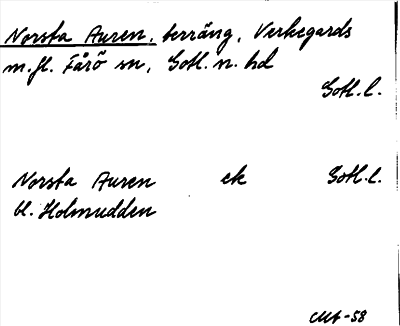 Norsta Auren, terräng, Verkegards
m.fl. Fårö sn, Gotl. n. hd
Gotl. l.
Norsta Auren ek Gotl. l.
bl. Holmudden
-58